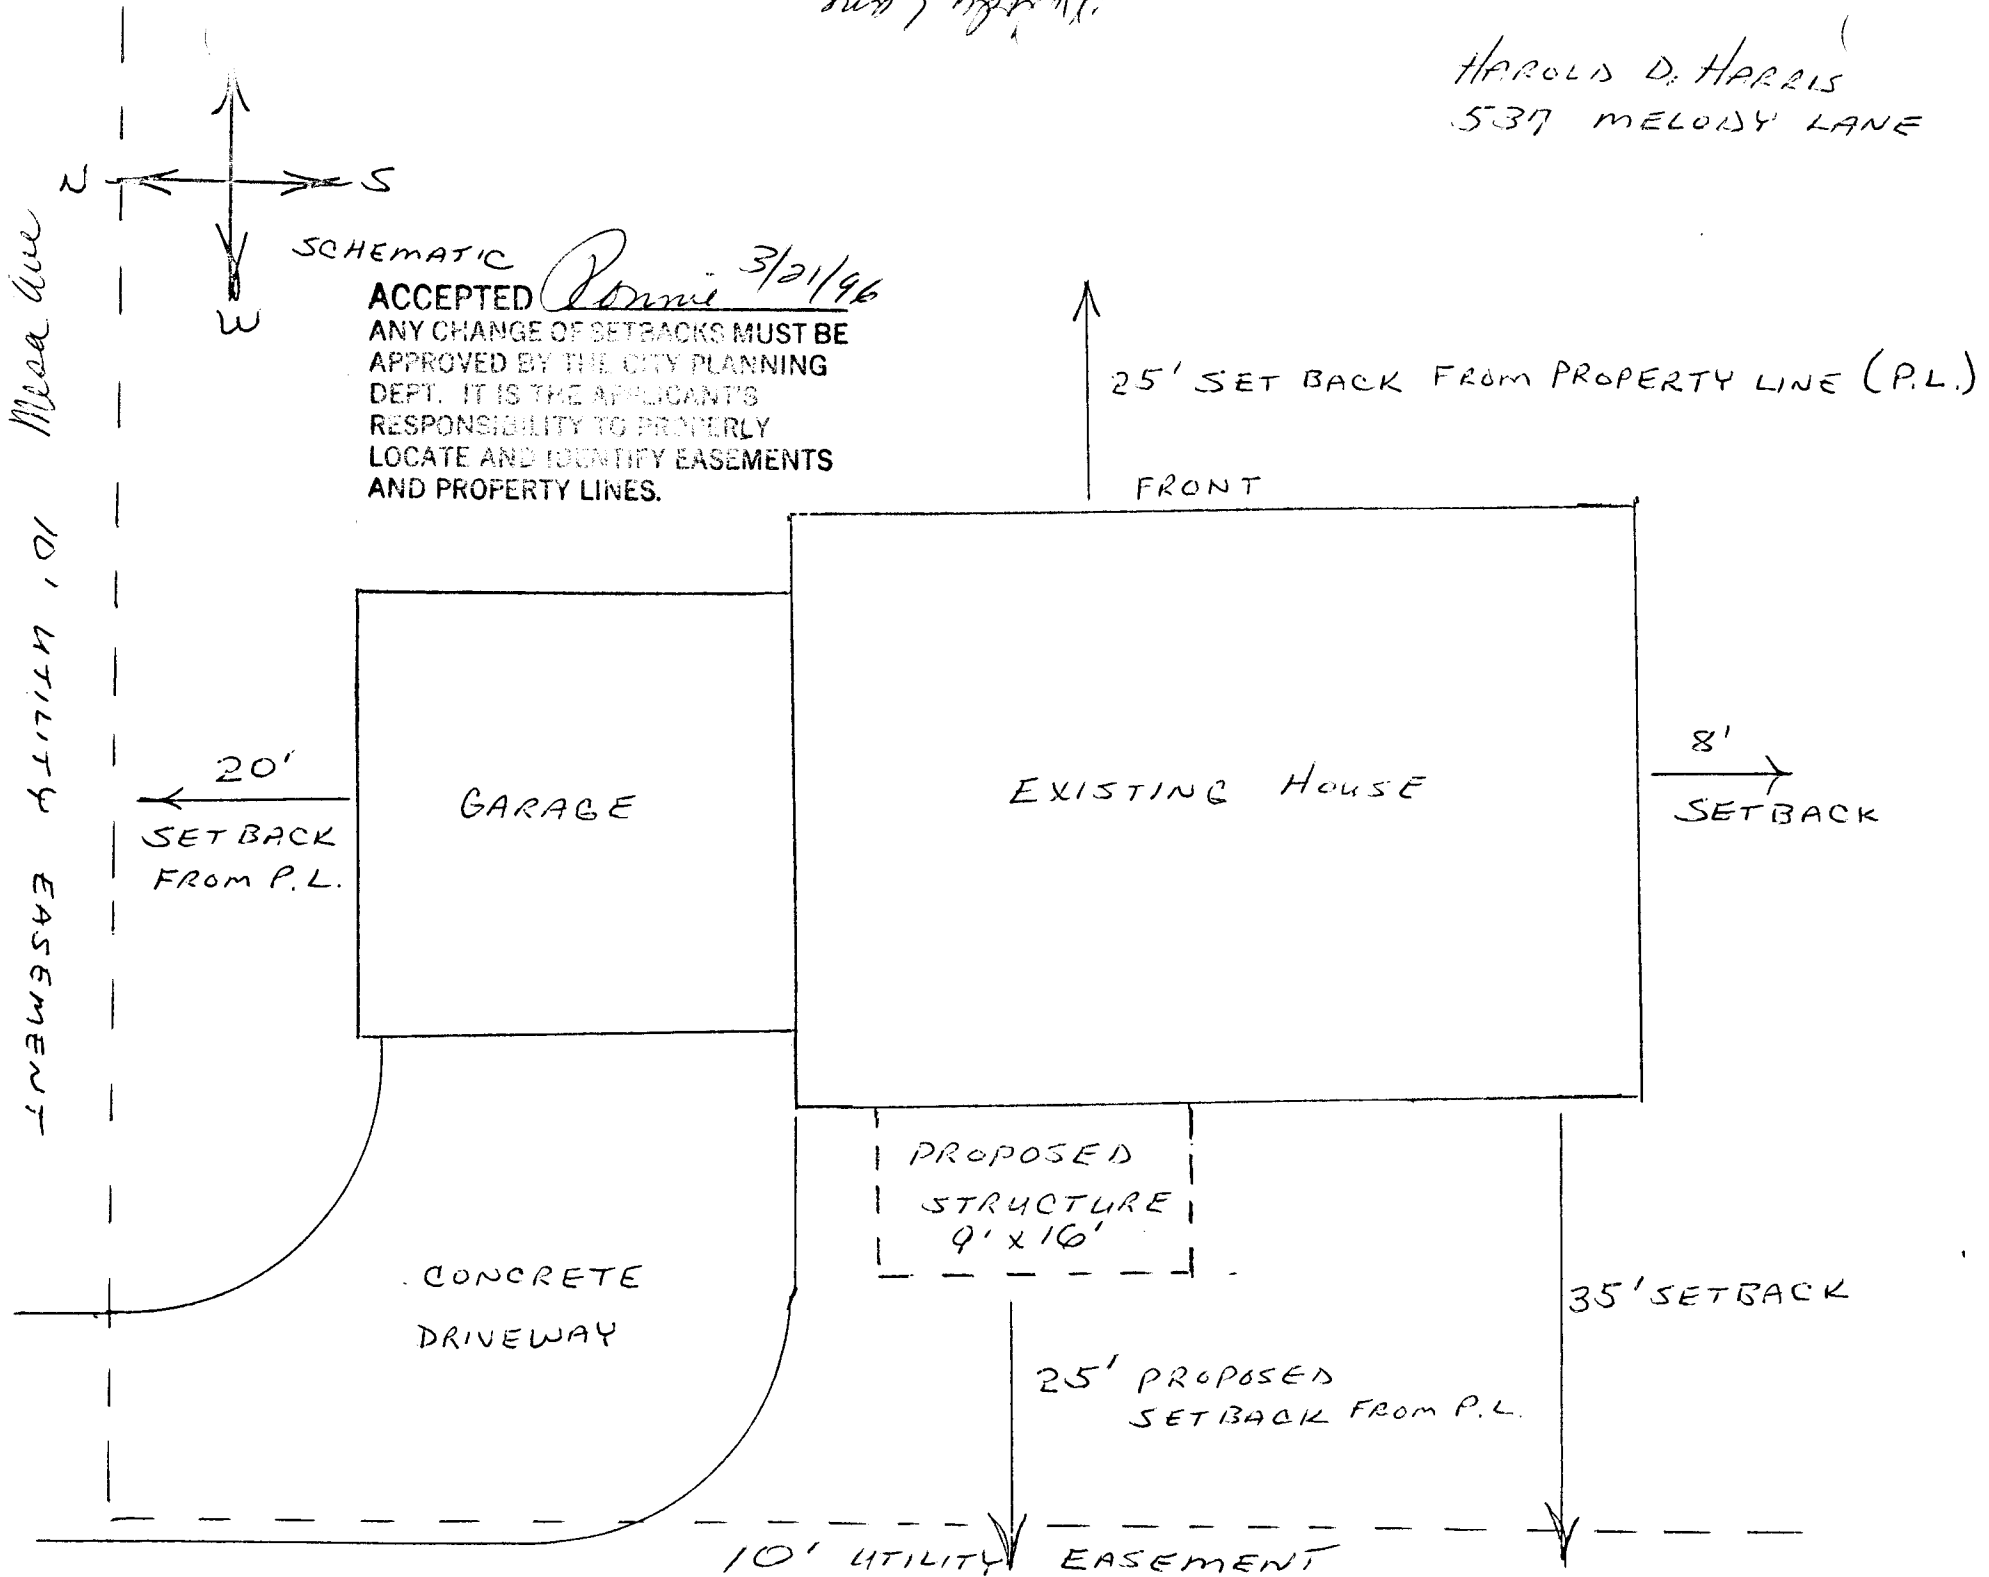 Melody Lane
HAROLD D. HARRIS
537 MELODY LANE
N
S
W
Mesa Ave
10' UTILITY EASEMENT
SCHEMATIC
ACCEPTED Ronnie 3/21/96
ANY CHANGE OF SETBACKS MUST BE
APPROVED BY THE CITY PLANNING
DEPT. IT IS THE APPLICANT'S
RESPONSIBILITY TO PROPERLY
LOCATE AND IDENTIFY EASEMENTS
AND PROPERTY LINES.
25' SET BACK FROM PROPERTY LINE (P.L.)
FRONT
20'
SETBACK
FROM P.L.
GARAGE
EXISTING HOUSE
8'
SETBACK
PROPOSED
STRUCTURE
9' x 16'
CONCRETE
DRIVEWAY
35' SETBACK
25' PROPOSED
SETBACK FROM P.L.
10' UTILITY EASEMENT